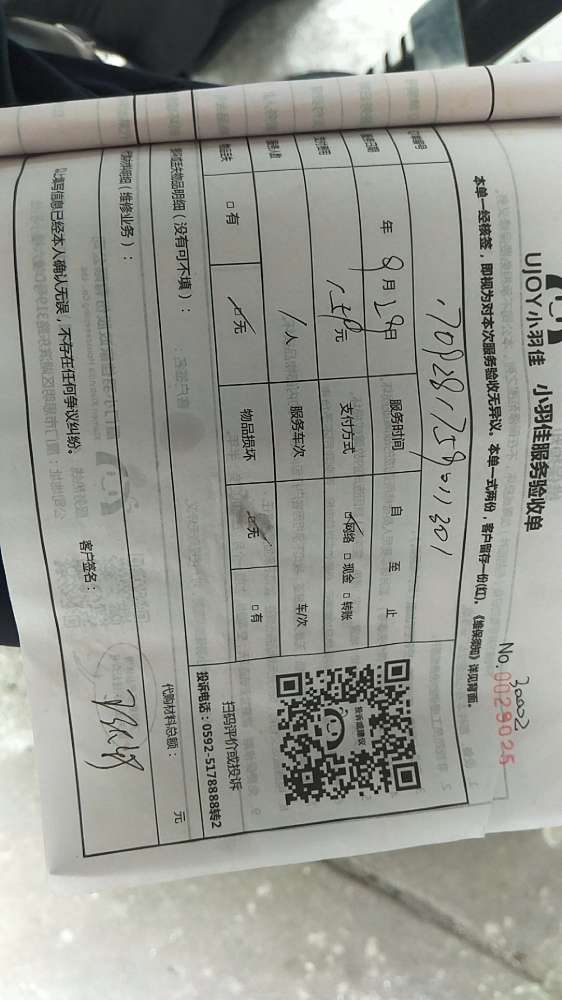 UJOY小羽佳 小羽佳服务验收单
No. 0029025
30002
本单一经核签，即视为对本次服务验收无异议。本单一式两份，客户留存一份(红)，《维保须知》详见背面。
年 8月29日 服务时间 自 至 止
元 支付方式 ☑网络 □现金 □转账
1人 服务车次 车/次
□有 ☑无 物品损坏 ☑无 □有
物品明细（没有可不填）：
（维修业务）： 代购材料总额： 元
填写信息已经本人确认无误，不存在任何争议纠纷。 客户签名：
投诉或建议
扫码评价或投诉
投诉电话：0592-5178888转2